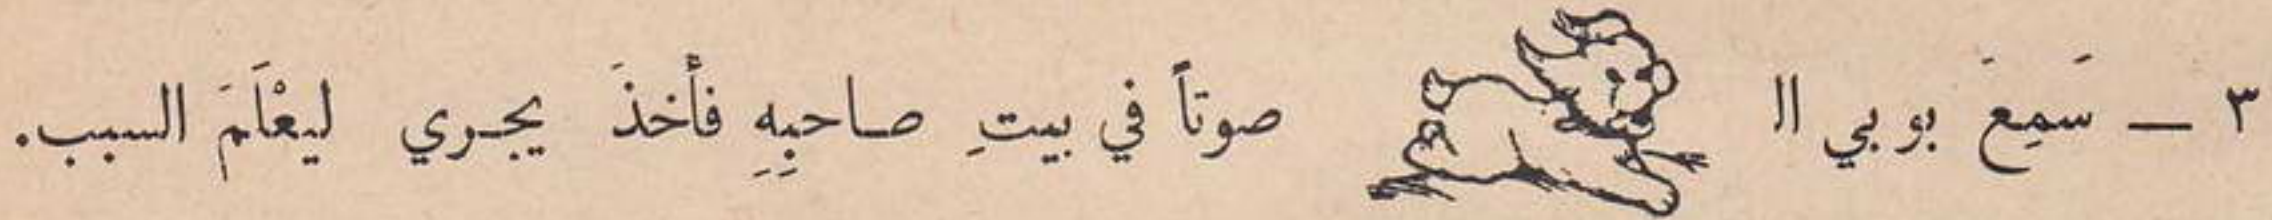 ٣ — سَمِعَ بوبي ال صوتاً في بيتِ صاحبِهِ فأخذَ يجري ليعْلَمَ السبب.